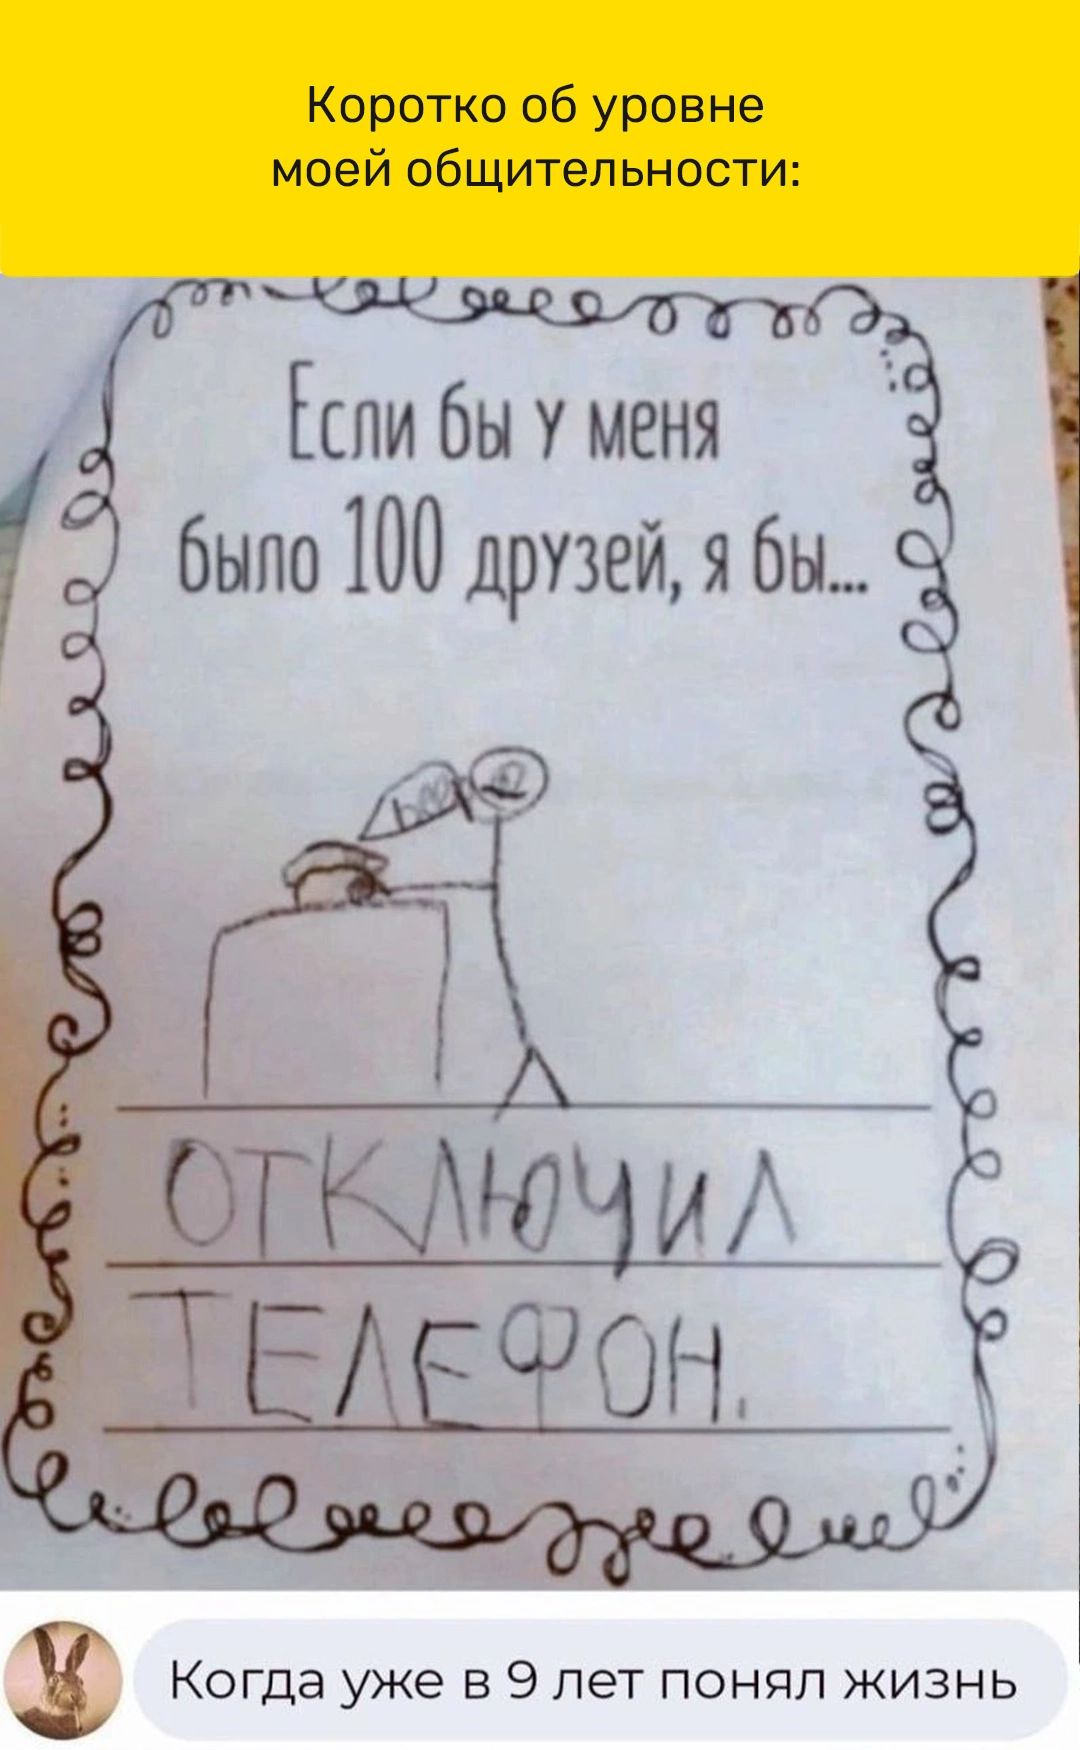 Коротко об уровне
моей общительности:
Если бы у меня
было 100 друзей, я бы...
ОТКЛЮЧИЛ
ТЕЛЕФОН.
Когда уже в 9 лет понял жизнь